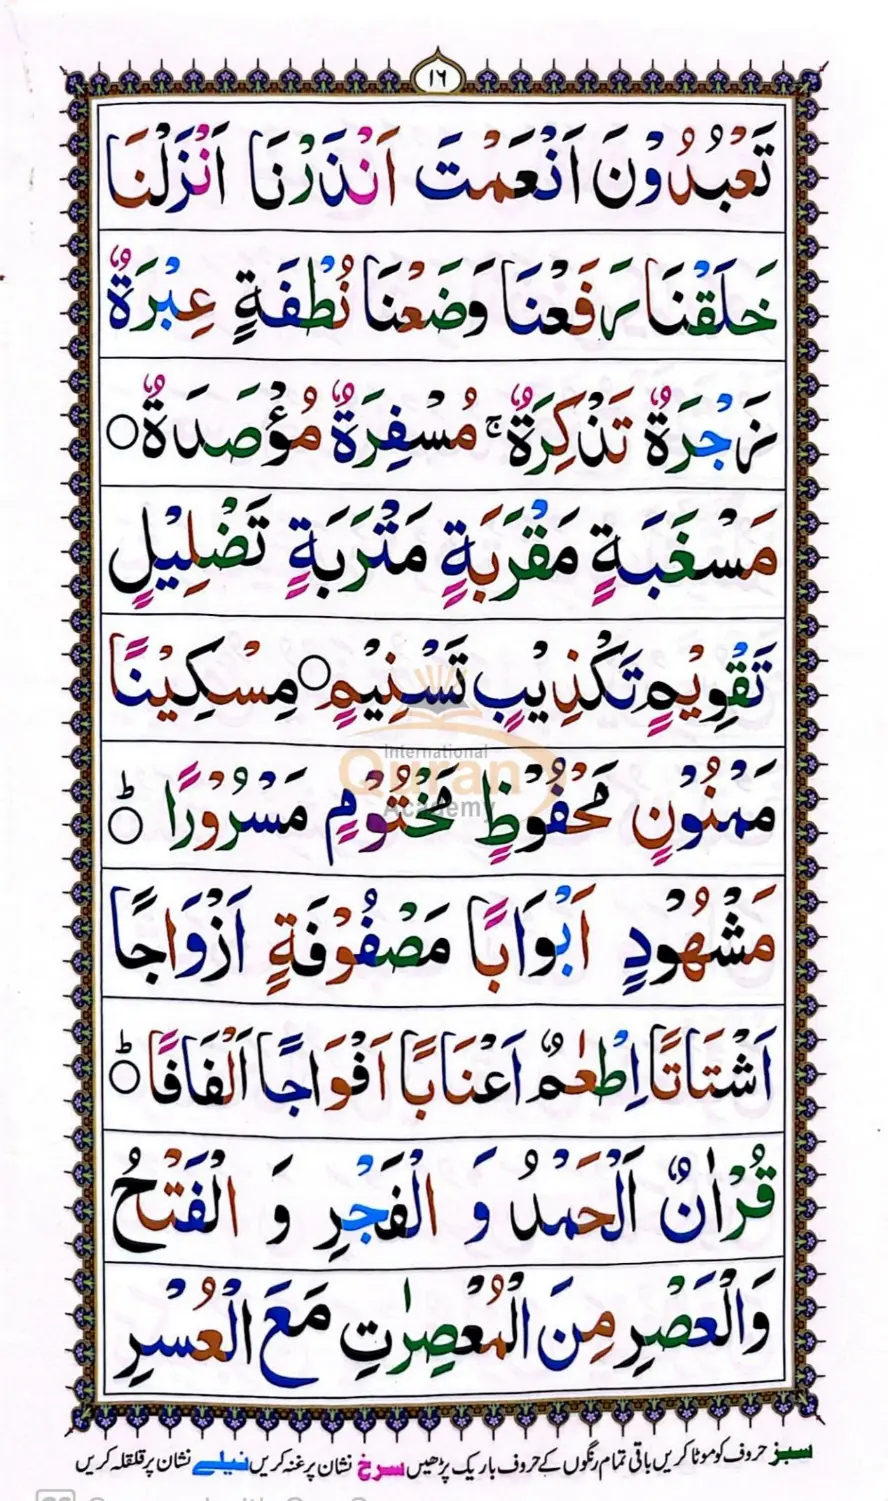 ١٦
تَعْبُدُوْنَ اَنْعَمْتَ اَنْذَرْنَا اَنْزَلْنَا
خَلَقْنَا رَفَعْنَا وَضَعْنَا نُطْفَةٍ عِبْرَةٌ
زَجْرَةٌ تَذْكِرَةٌ ۚ مُسْفِرَةٌ مُؤْصَدَةٌ ○
مَسْغَبَةٍ مَقْرَبَةٍ مَتْرَبَةٍ تَضْلِيْلٍ
تَقْوِيْمٍ تَكْذِيْبٍ تَسْنِيْمٍ ○ مِسْكِيْنًا
International
Quran
Academy
مَمْنُوْنٍ مَحْفُوْظٍ مَخْتُوْمٍ مَسْرُوْرًا ○ؕ
مَشْهُوْدٍ اَبْوَابًا مَصْفُوْفَةٍ اَزْوَاجًا
اَشْتَاتًا اِطْعٰمٌ اَعْنَابًا اَفْوَاجًا اَلْفَافًا ○ؕ
قُرْاٰنٌ اَلْحَمْدُ وَ الْفَجْرِ وَ الْفَتْحُ
وَالْعَصْرِ مِنَ الْمُعْصِرٰتِ مَعَ الْعُسْرِ
سبز حروف کو موٹا کریں باقی تمام رنگوں کے حروف باریک پڑھیں سرخ نشان پر غنہ کریں نیلے نشان پر قلقلہ کریں